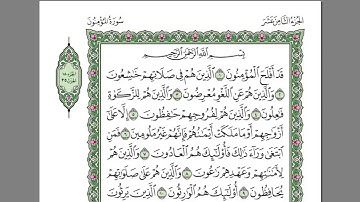 الجزء الثامن عشر
سورة المؤمنون
بِسْمِ اللَّهِ الرَّحْمَٰنِ الرَّحِيمِ
قَدْ أَفْلَحَ الْمُؤْمِنُونَ ١ الَّذِينَ هُمْ فِي صَلَاتِهِمْ خَاشِعُونَ
٢ وَالَّذِينَ هُمْ عَنِ اللَّغْوِ مُعْرِضُونَ ٣ وَالَّذِينَ هُمْ لِلزَّكَاةِ
فَاعِلُونَ ٤ وَالَّذِينَ هُمْ لِفُرُوجِهِمْ حَافِظُونَ ٥ إِلَّا عَلَىٰ
أَزْوَاجِهِمْ أَوْ مَا مَلَكَتْ أَيْمَانُهُمْ فَإِنَّهُمْ غَيْرُ مَلُومِينَ ٦ فَمَنِ
ابْتَغَىٰ وَرَاءَ ذَٰلِكَ فَأُولَٰئِكَ هُمُ الْعَادُونَ ٧ وَالَّذِينَ هُمْ
لِأَمَانَاتِهِمْ وَعَهْدِهِمْ رَاعُونَ ٨ وَالَّذِينَ هُمْ عَلَىٰ صَلَوَاتِهِمْ
يُحَافِظُونَ ٩ أُولَٰئِكَ هُمُ الْوَارِثُونَ ١٠ الَّذِينَ يَرِثُونَ